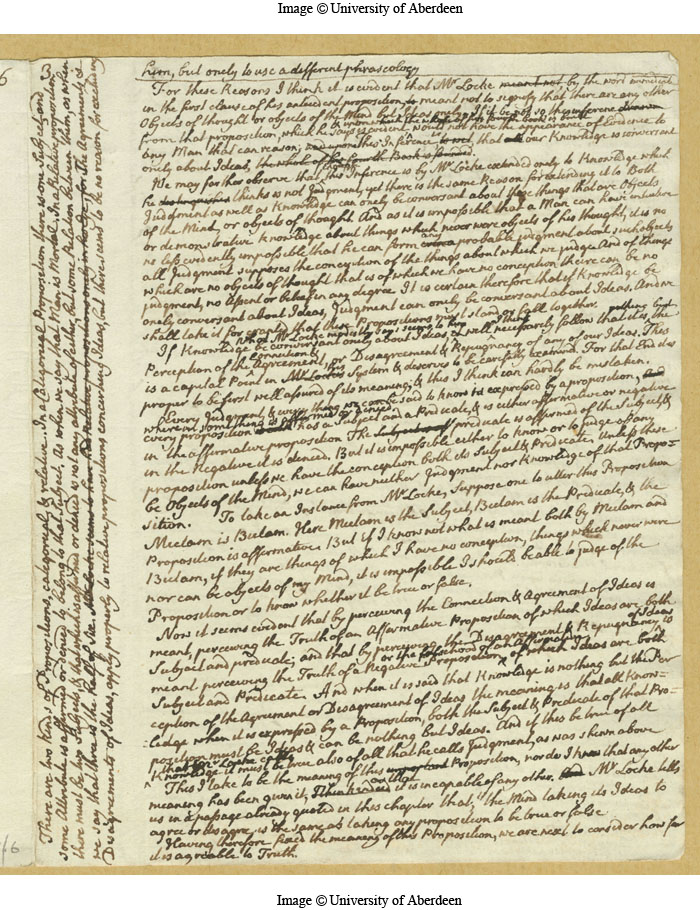 Image © University of Aberdeen
him, but onely to use a different phraseology
For these Reasons I think it is evident that Mr Locke meant not by the word
in the first clause of his antecedent proposition, to meant not to signify that there are any other
Objects of thought or objects of the Mind but Ideas
from that proposition, which he says is evident would not have the appearance of Evidence to
any Man that can reason, upon this Inference that all our Knowledge is conversant
onely about Ideas, the whole of his fourth Book is founded.
We may farther observe that this Inference is by Mr Locke extended onely to Knowledge which
he distinguishes thinks is not Judgment, yet there is the same Reason for extending it to Both
Judgment as well as Knowledge can onely be conversant about those things that are Objects
of the Mind, or objects of thought. And as it is impossible that a Man can have intuitive
or demonstrative knowledge about things which never were objects of his thought, it is no
no less evidently impossible that he can form any probable judgment about such objects
all Judgment supposes the conception of the things about which we judge. And of things
which are no objects of thought that is of which we have no conception there can be no
judgment, no assent or belief in any degree. It is certain therefore that if Knowledge be
onely conversant about Ideas, Judgment can onely be conversant about Ideas. And we
shall take it for granted that these Propositions must stand or fall together.
If Knowledge be conversant onely about Ideas, it will necessarily follow that it is the nothing but
Perception of the connection & Agreement, or Disagreement & Repugnancy of any of our Ideas. This
is a capital Point in Mr Lockes this System & deserves to be carefully examined. For that End it is
proper to be first well assured of its meaning, & this I think can hardly be mistaken.
Every Judgment, & every thing we can be said to know is expressed by a proposition, and
wherein something is affirmed or denied
every proposition has a Subject and a Predicate, & is either affirmative or negative
in the affirmative proposition The predicate is affirmed of the Subject, &
in the Negative it is denied. But it is impossible either to know or to judge of any
proposition unless we have the conception both its Subject & Predicate. Unless these
be Objects of the Mind, we can have neither Judgment nor Knowledge of that Propo-
sition. To take an Instance from Mr Locke, Suppose one to utter this Proposition
Meclam is Beclam. Here Meclam is the Subject, Beclam is the Predicate, & the
Proposition is affirmative. But if I know not what is meant both by Meclam and
Beclam, if they are things of which I have no conception, things which never were
nor can be objects of my Mind, it is impossible I should be able to judge of the
Proposition or to know whether it be true or false.
Now it seems evident that by perceiving the Connection & Agreement of Ideas is
meant, perceiving the Truth of an Affirmative Proposition of which Ideas are both
Subject and predicate; and that by perceiving the Disagreement & Repugnancy of Ideas is
meant perceiving the Truth of a Negative Proposition or the falsehood of an affirmative of which Ideas are both
Subject and Predicate. And when it is said that Knowledge is nothing but the Per
ception of the Agreement or Disagreement of Ideas the meaning is that all Know-
ledge when it is expressed by a Proposition, both the Subject & Predicate of that Pro-
position must be Ideas & can be nothing but Ideas. And if this be true of all
knowledge it must be true also of all that he calls Judgment, as was shewn above
This I take to be the meaning of this Proposition, nor do I know that any other
meaning has been given it, or that it is incapable of any other. Mr Locke tells
us in a passage already quoted in this chapter that, "the Mind taking its Ideas to
agree or disagree, is the same as taking any proposition to be true or false
Having therefore fixed the meaning of this Proposition, we are next to consider how far
it is agreable to Truth.
There are two Kinds of Propositions, categorical & relative. In a Categorical Proposition there is one Subject, and
some Attribute is affirmed or denied to belong to that Subject, As when we say that Man is Mortal. In a Relative proposition
there must be two Subjects, & that which is affirmed or denied is not any attribute of either, but some Relation between them, as when
we say that there is the
Disagreements of Ideas, apply properly to relative propositions concerning Ideas, but there seems to be no reason for excluding
Image © University of Aberdeen